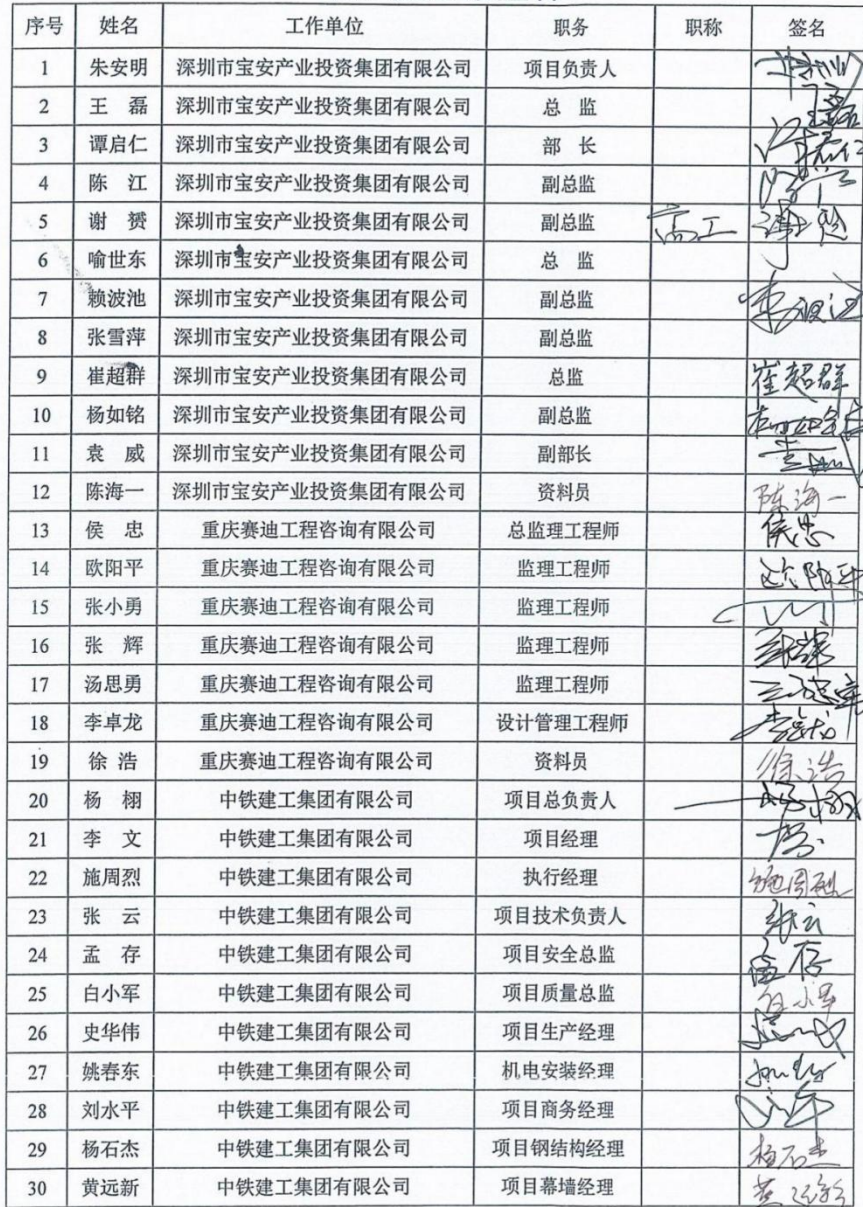 序号 姓名 工作单位 职务 职称 签名
1 朱安明 深圳市宝安产业投资集团有限公司 项目负责人
2 王 磊 深圳市宝安产业投资集团有限公司 总 监 王磊
3 谭启仁 深圳市宝安产业投资集团有限公司 部 长
4 陈 江 深圳市宝安产业投资集团有限公司 副总监 陈江
5 谢 赟 深圳市宝安产业投资集团有限公司 副总监 高工
6 喻世东 深圳市宝安产业投资集团有限公司 总 监
7 赖波池 深圳市宝安产业投资集团有限公司 副总监
8 张雪萍 深圳市宝安产业投资集团有限公司 副总监
9 崔超群 深圳市宝安产业投资集团有限公司 总监 崔超群
10 杨如铭 深圳市宝安产业投资集团有限公司 副总监
11 袁 威 深圳市宝安产业投资集团有限公司 副部长
12 陈海一 深圳市宝安产业投资集团有限公司 资料员 陈海一
13 侯 忠 重庆赛迪工程咨询有限公司 总监理工程师 侯忠
14 欧阳平 重庆赛迪工程咨询有限公司 监理工程师 欧阳平
15 张小勇 重庆赛迪工程咨询有限公司 监理工程师
16 张 辉 重庆赛迪工程咨询有限公司 监理工程师 张辉
17 汤思勇 重庆赛迪工程咨询有限公司 监理工程师
18 李卓龙 重庆赛迪工程咨询有限公司 设计管理工程师 李卓龙
19 徐 浩 重庆赛迪工程咨询有限公司 资料员 徐浩
20 杨 栩 中铁建工集团有限公司 项目总负责人 杨栩
21 李 文 中铁建工集团有限公司 项目经理
22 施周烈 中铁建工集团有限公司 执行经理 施周烈
23 张 云 中铁建工集团有限公司 项目技术负责人 张云
24 孟 存 中铁建工集团有限公司 项目安全总监 孟存
25 白小军 中铁建工集团有限公司 项目质量总监 白小军
26 史华伟 中铁建工集团有限公司 项目生产经理
27 姚春东 中铁建工集团有限公司 机电安装经理
28 刘水平 中铁建工集团有限公司 项目商务经理
29 杨石杰 中铁建工集团有限公司 项目钢结构经理 杨石杰
30 黄远新 中铁建工集团有限公司 项目幕墙经理 黄远新